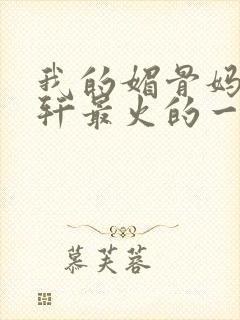 我的媚骨妈
轩最火的一
慕芙蓉